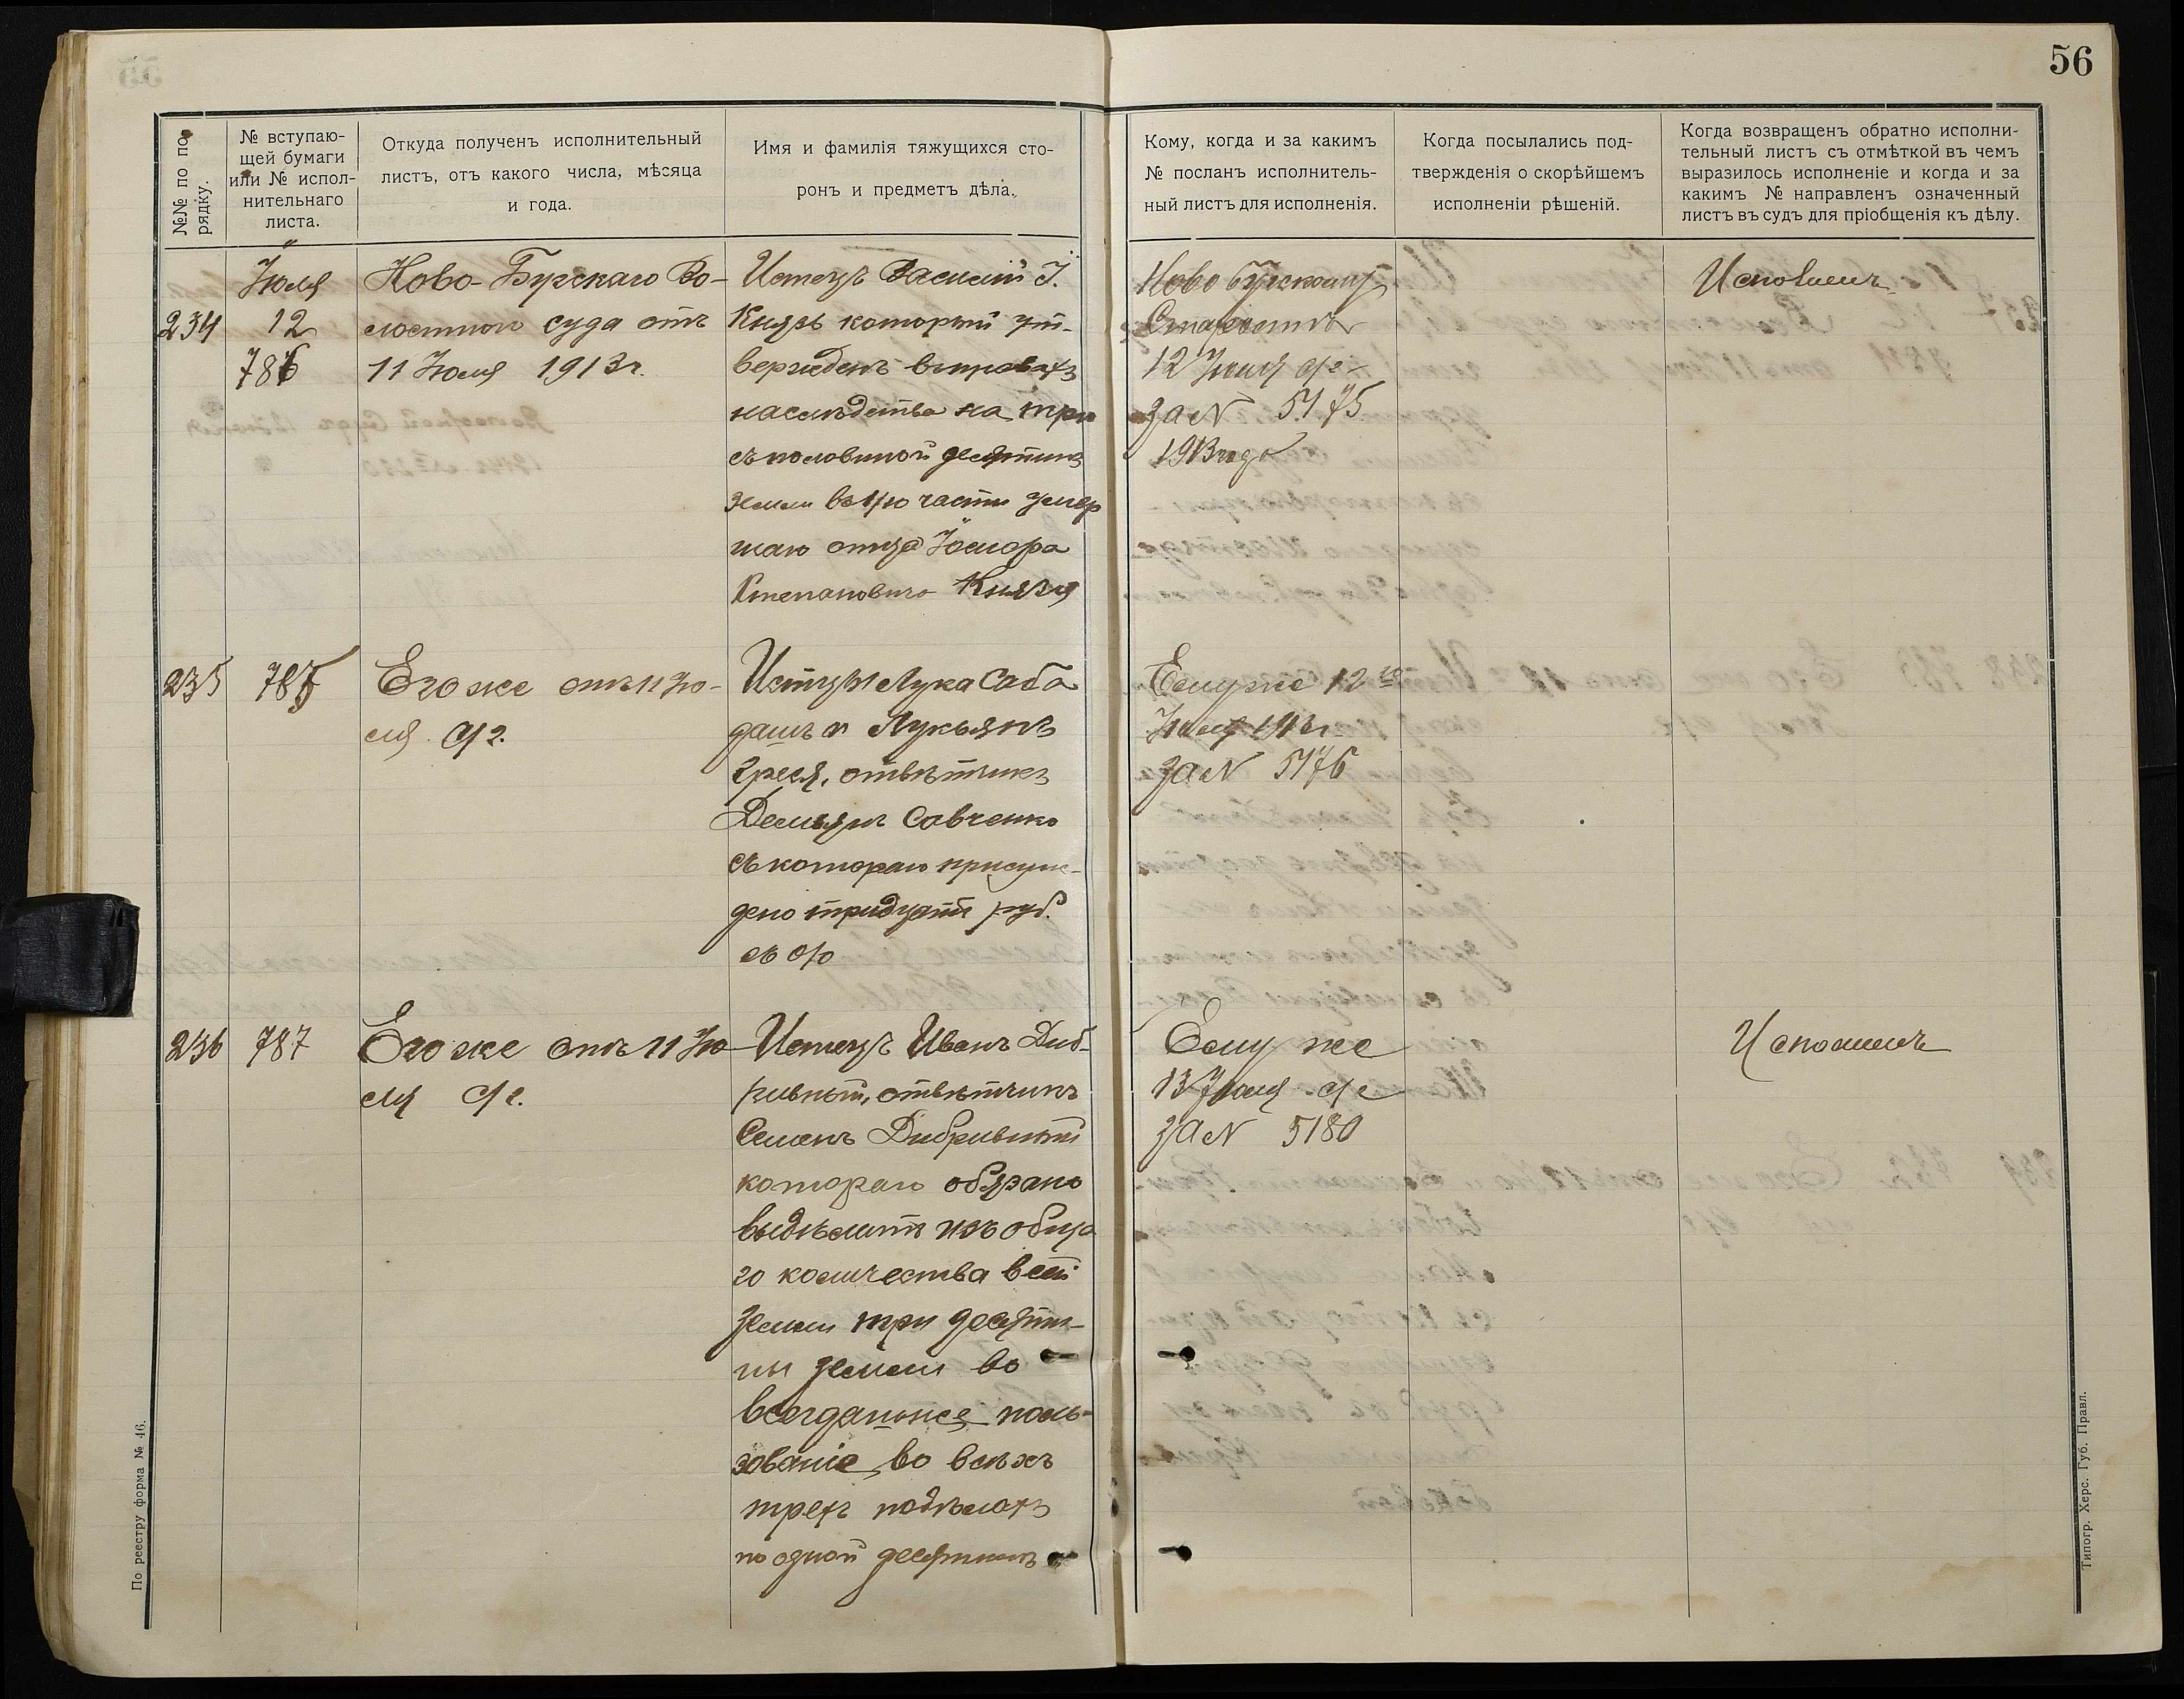 56
№№ по по-
рядку.
№ вступаю-
щей бумаги
или № испол-
нительнаго
листа.
Откуда полученъ исполнительный
листъ, отъ какого числа, мѣсяца
и года.
Имя и фамилія тяжущихся сто-
ронъ и предметъ дѣла.
Кому, когда и за какимъ
№ посланъ исполнитель-
ный листъ для исполненія.
Когда посылались под-
твержденія о скорѣйшемъ
исполненіи рѣшеній.
Когда возвращенъ обратно исполни-
тельный листъ съ отмѣткой въ чемъ
выразилось исполненіе и когда и за
какимъ № направленъ означенный
листъ въ судъ для пріобщенія къ дѣлу.
234
Іюля
12
786
Ново-Бугскаго Во-
лостного суда отъ
11 Іюля 1913г.
Истецъ Василій І.
Князь который ут-
вержденъ въ правахъ
наслѣдства на три
съ половиной десятинъ
земли въ 1/10 части умер
шаго отца
Степановича Князя
Ново Бугскому
Старостѣ
12 Іюля с/г
за N 5175
1913 года
Исполненъ
235
785
Его же отъ 11 Ію-
ля с/г.
Истцы Лука Саба
дашъ и Лукьянъ
отвѣтчикъ
Демьянъ Савченко
съ котораго присуж-
дено тридцать руб.
съ о/о
Ему же 12 го
Іюля 1913г.
за N 5176
236
787
Его же отъ 11 Ію
ля с/г.
Истецъ Иванъ Диб-
ривный, отвѣтчикъ
Семенъ Дибривный
котораго обязано
выдѣлить изъ обща
го количества всей
земли три десяти-
ны земли во
всегдашнее поль-
зованіе во всѣхъ
трехъ подѣлахъ
по одной десятинѣ
Ему же
13 Іюля с/г
за N 5180
Исполненъ
По реестру форма № 46.
Типогр. Херс. Губ. Правл.